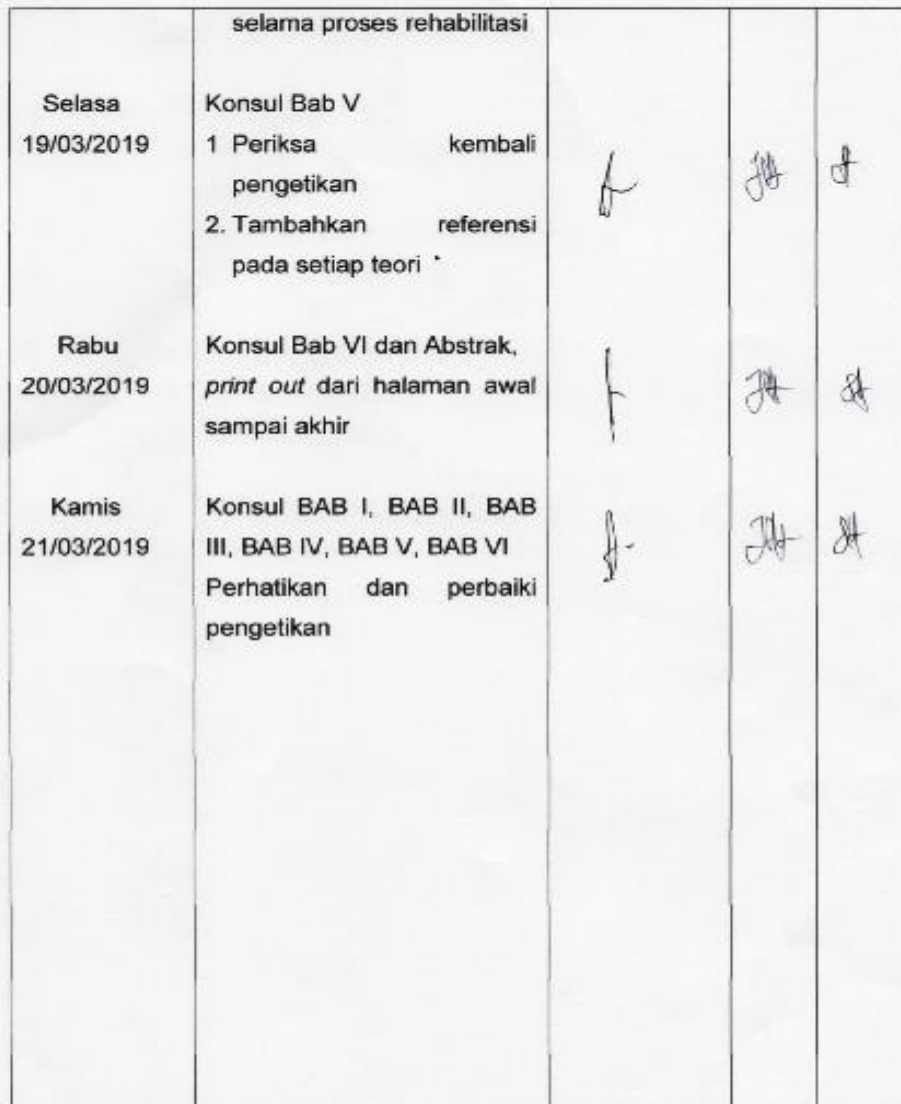 selama proses rehabilitasi
Selasa
19/03/2019
Konsul Bab V
1 Periksa kembali
pengetikan
2. Tambahkan referensi
pada setiap teori
Rabu
20/03/2019
Konsul Bab VI dan Abstrak,
print out dari halaman awal
sampai akhir
Kamis
21/03/2019
Konsul BAB I, BAB II, BAB
III, BAB IV, BAB V, BAB VI
Perhatikan dan perbaiki
pengetikan